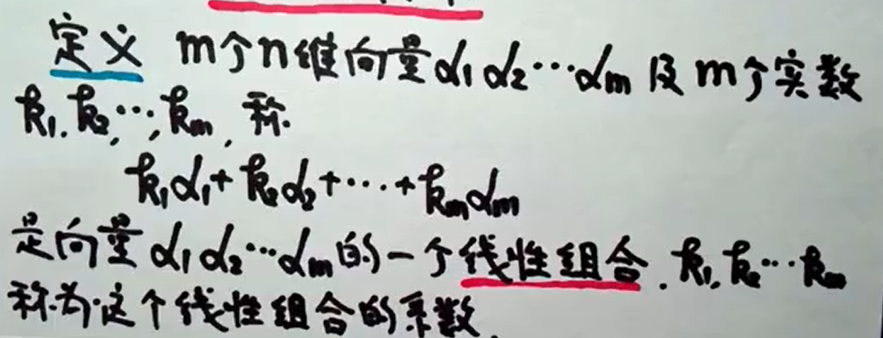 定义 m个n维向量α₁α₂⋯αₘ及m个实数
k₁,k₂,⋯,kₘ,称
k₁α₁+k₂α₂+⋯+kₘαₘ
是向量α₁α₂⋯αₘ的一个线性组合.k₁,k₂⋯kₘ
称为这个线性组合的系数.